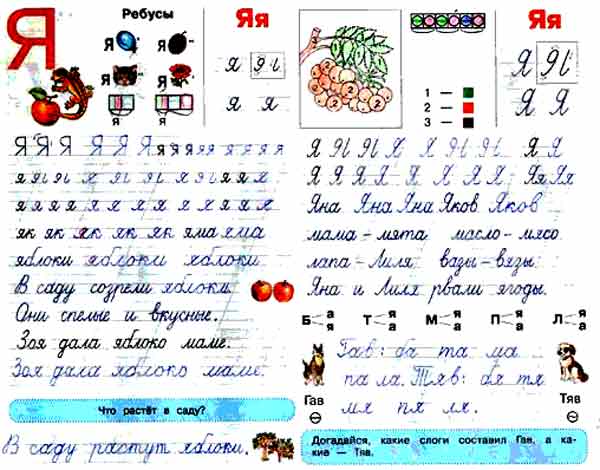 Я
Ребусы
Яя
Я
Я
я
я
Я Я
я я
Я Я Я Я Я Я я я я я я я я я
я я я я я я я я я я я я
я я я я я я я я я я я я
як як як як як яма яма
яблоки яблоки яблоки
В саду созрели яблоки.
Они спелые и вкусные.
Зоя дала яблоко маме.
Зоя дала яблоко маме.
Что растёт в саду?
В саду растут яблоки.
Яя
1 —
2 —
3 —
Я Я
Я Я
Я Я Я Я Я Я Я Я Я
Я Я Я Я Я Я Я Я Яя Яя
Яна Яна Яна Яков Яков
мама – мята масло – мясо
лапа – Лиля вазы – вязы
Яна и Лиля рвали ягоды.
Б а я Т я а М я а П я а Л я а
Гав: ба та ма
па ла. Тяв: бя тя
мя пя ля.
Гав
Тяв
Догадайся, какие слоги составил Гав, а ка-
кие — Тяв.